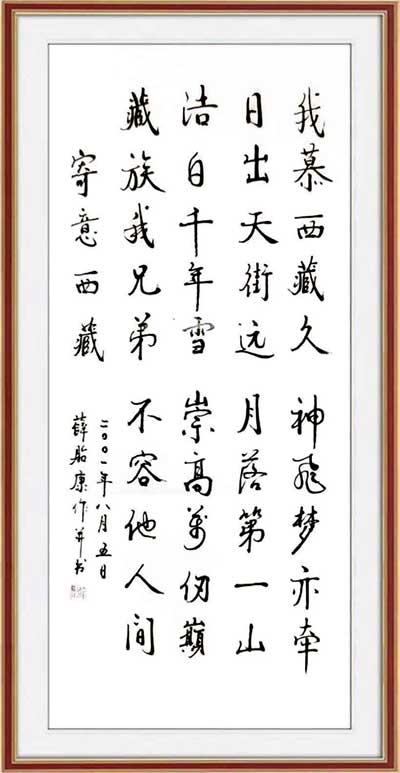 我慕西藏久 神飛梦亦牵
日出天街远 月落第一山
洁白千年雪 崇高萬仞巔
藏族我兄弟 不容他人间
寄意西藏
二〇〇一年八月五日
薛船康作并书